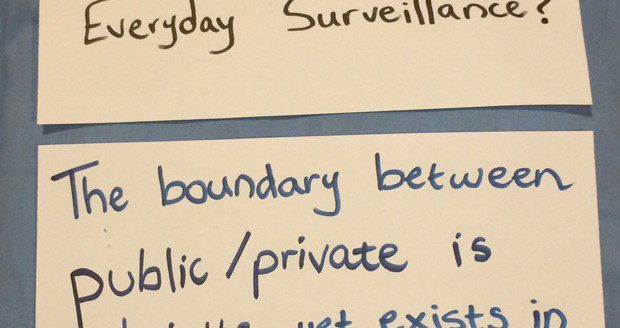 Everyday Surveillance?
The boundary between
public/private is
yet exists in